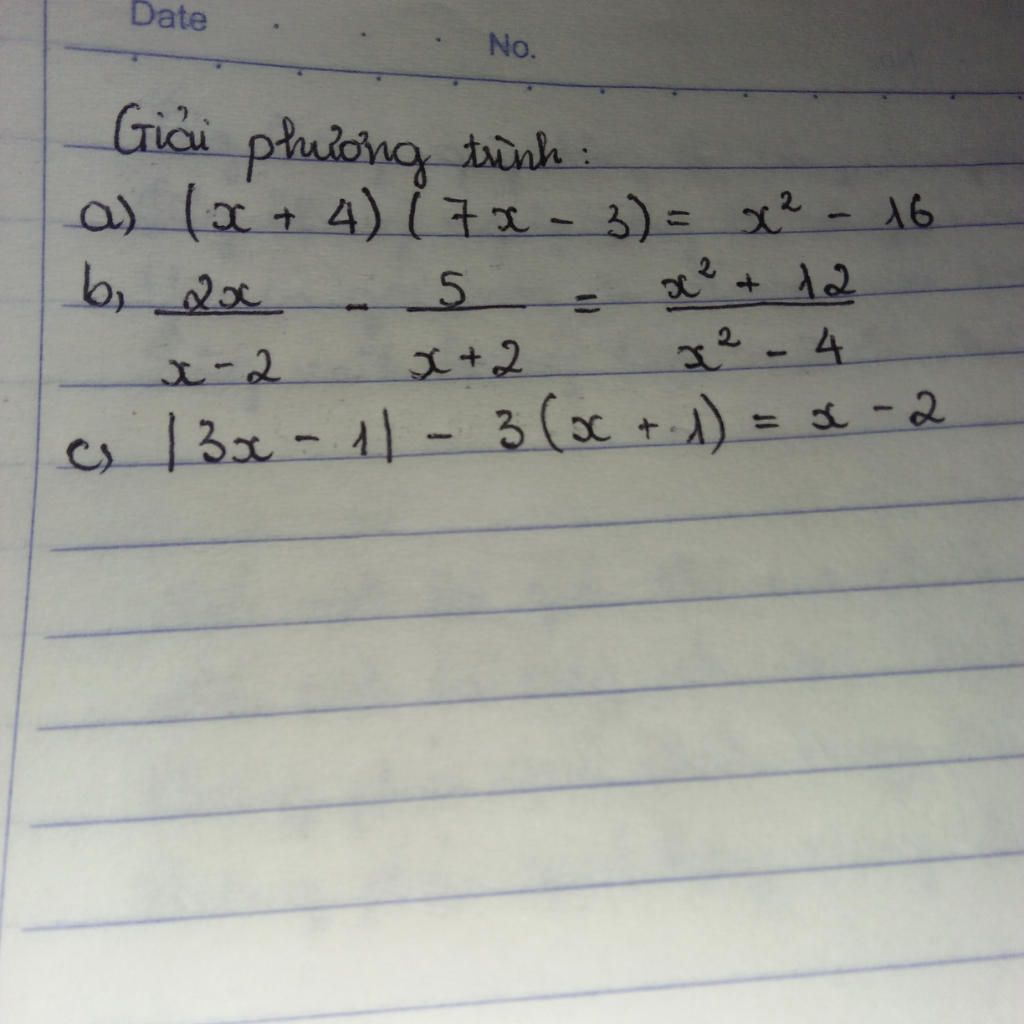 Date
No.
Giải phương trình:
a) (x + 4)(7x - 3) = x² - 16
b, 2x/x-2 - 5/x+2 = x² + 12/x² - 4
c, |3x - 1| - 3(x + 1) = x - 2